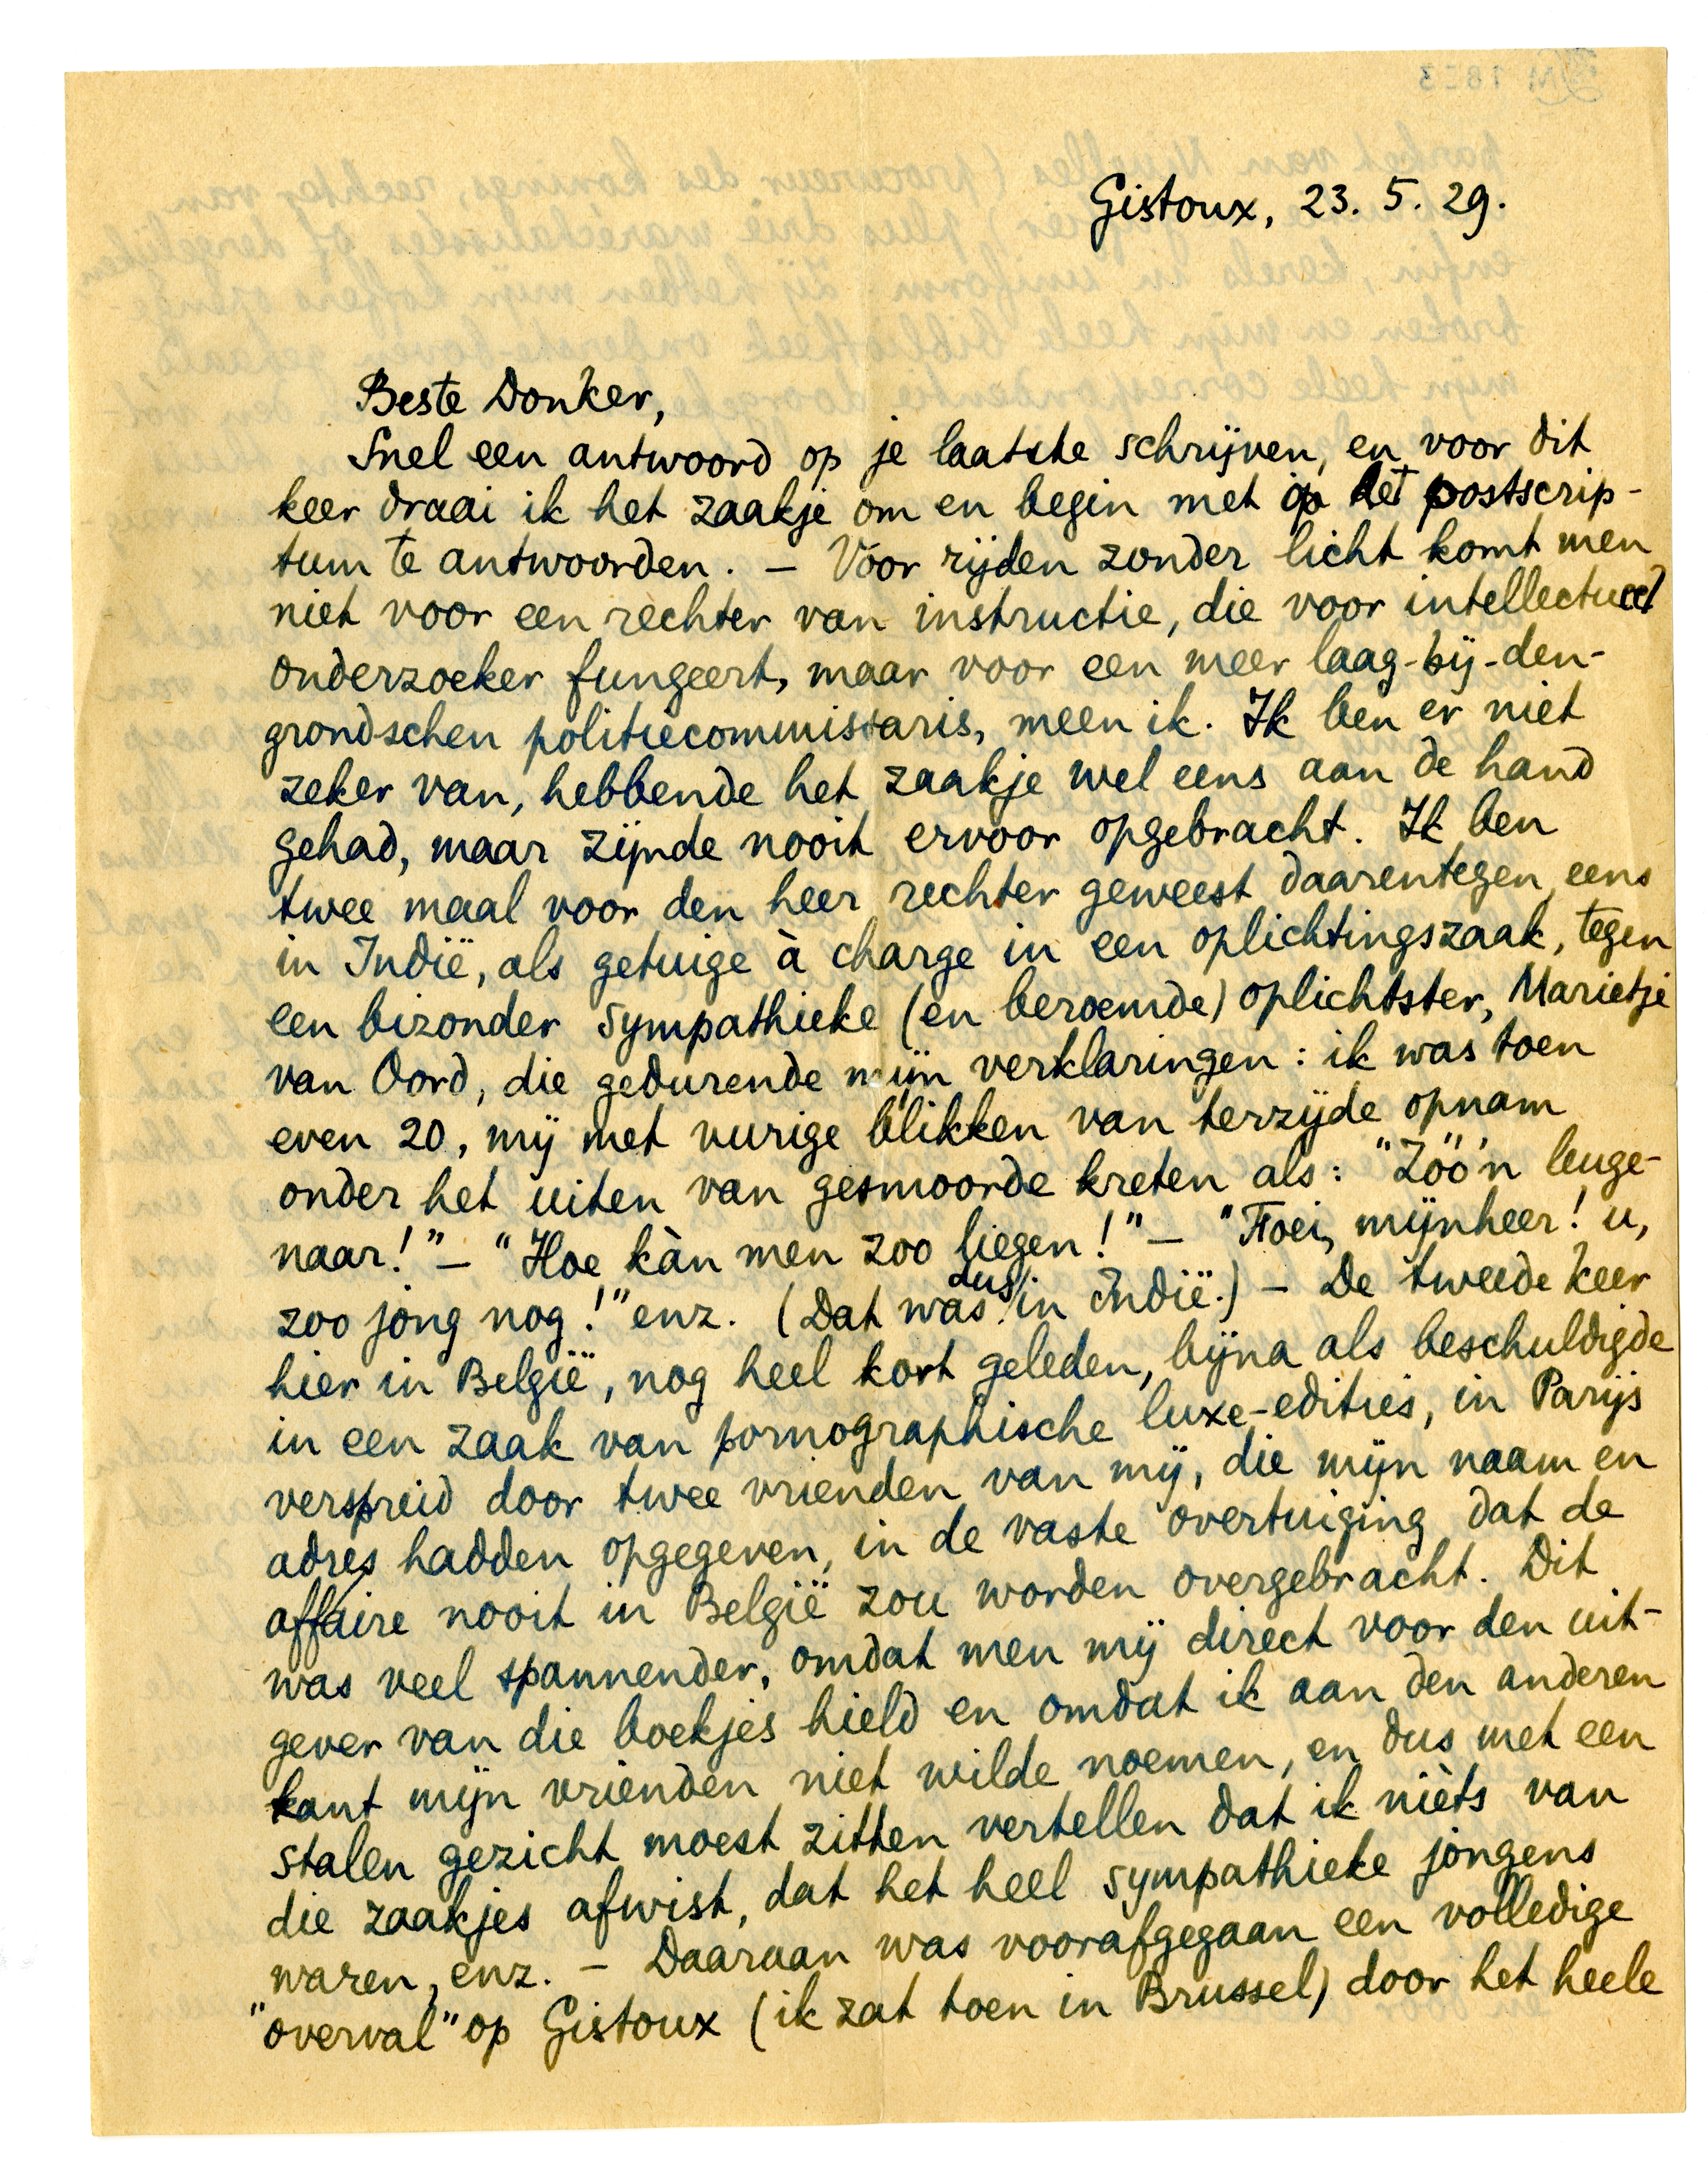 Gistoux, 23. 5. 29.
Beste Donker,
Snel een antwoord op je laatste schrijven, en voor dit
keer draai ik het zaakje om en begin met op het postscrip-
tum te antwoorden. – Voor rijden zonder licht komt men
niet voor een rechter van instructie, die voor intellectueel
onderzoeker fungeert, maar voor een meer laag-bij-den-
grondschen politiecommissaris, meen ik. Ik ben er niet
zeker van, hebbende het zaakje wel eens aan de hand
gehad, maar zijnde nooit ervoor opgebracht. Ik ben
twee maal voor den heer rechter geweest daarentegen, eens
in Indië, als getuige à charge in een oplichtingszaak, tegen
een bizonder sympathieke (en beroemde) oplichtster, Marietje
van Oord, die gedurende mijn verklaringen: ik was toen
even 20, mij met vurige blikken van terzijde opnam
onder het uiten van gesmoorde kreten als: "Zóó'n leuge-
naar!" – "Hoe kàn men zoo liegen!" – "Foei, mijnheer! u,
zoo jong nog!" enz. (Dat was dus in Indië.) – De tweede keer
hier in België, nog heel kort geleden, bijna als beschuldigde
in een zaak van pornographische luxe-edities, in Parijs
verspreid door twee vrienden van mij, die mijn naam en
adres hadden opgegeven, in de vaste overtuiging dat de
affaire nooit in België zou worden overgebracht. Dit
was veel spannender, omdat men mij direct voor den uit-
gever van die boekjes hield en omdat ik aan den anderen
kant mijn vrienden niet wilde noemen, en dus met een
stalen gezicht moest zitten vertellen dat ik nièts van
die zaakjes afwist, dat het heel sympathieke jongens
waren, enz. – Daaraan was voorafgegaan een volledige
"overval" op Gistoux (ik zat toen in Brussel) door het heele